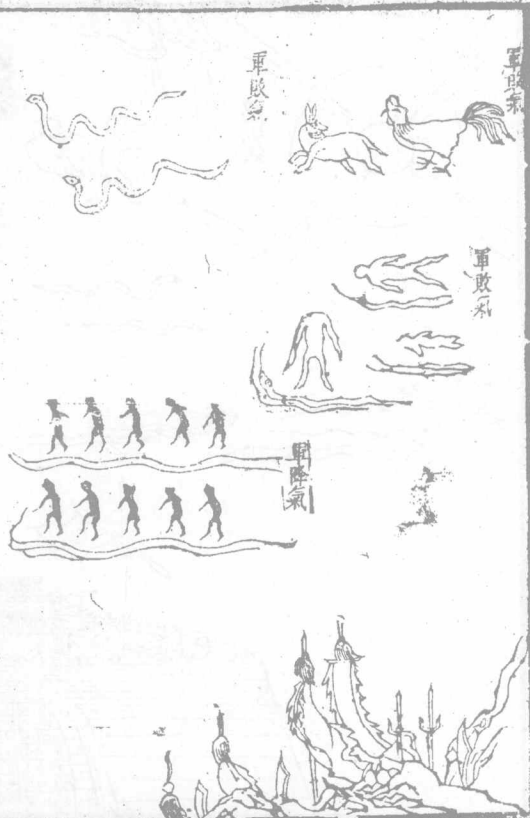 軍敗氣
軍敗氣
軍敗氣
軍降氣